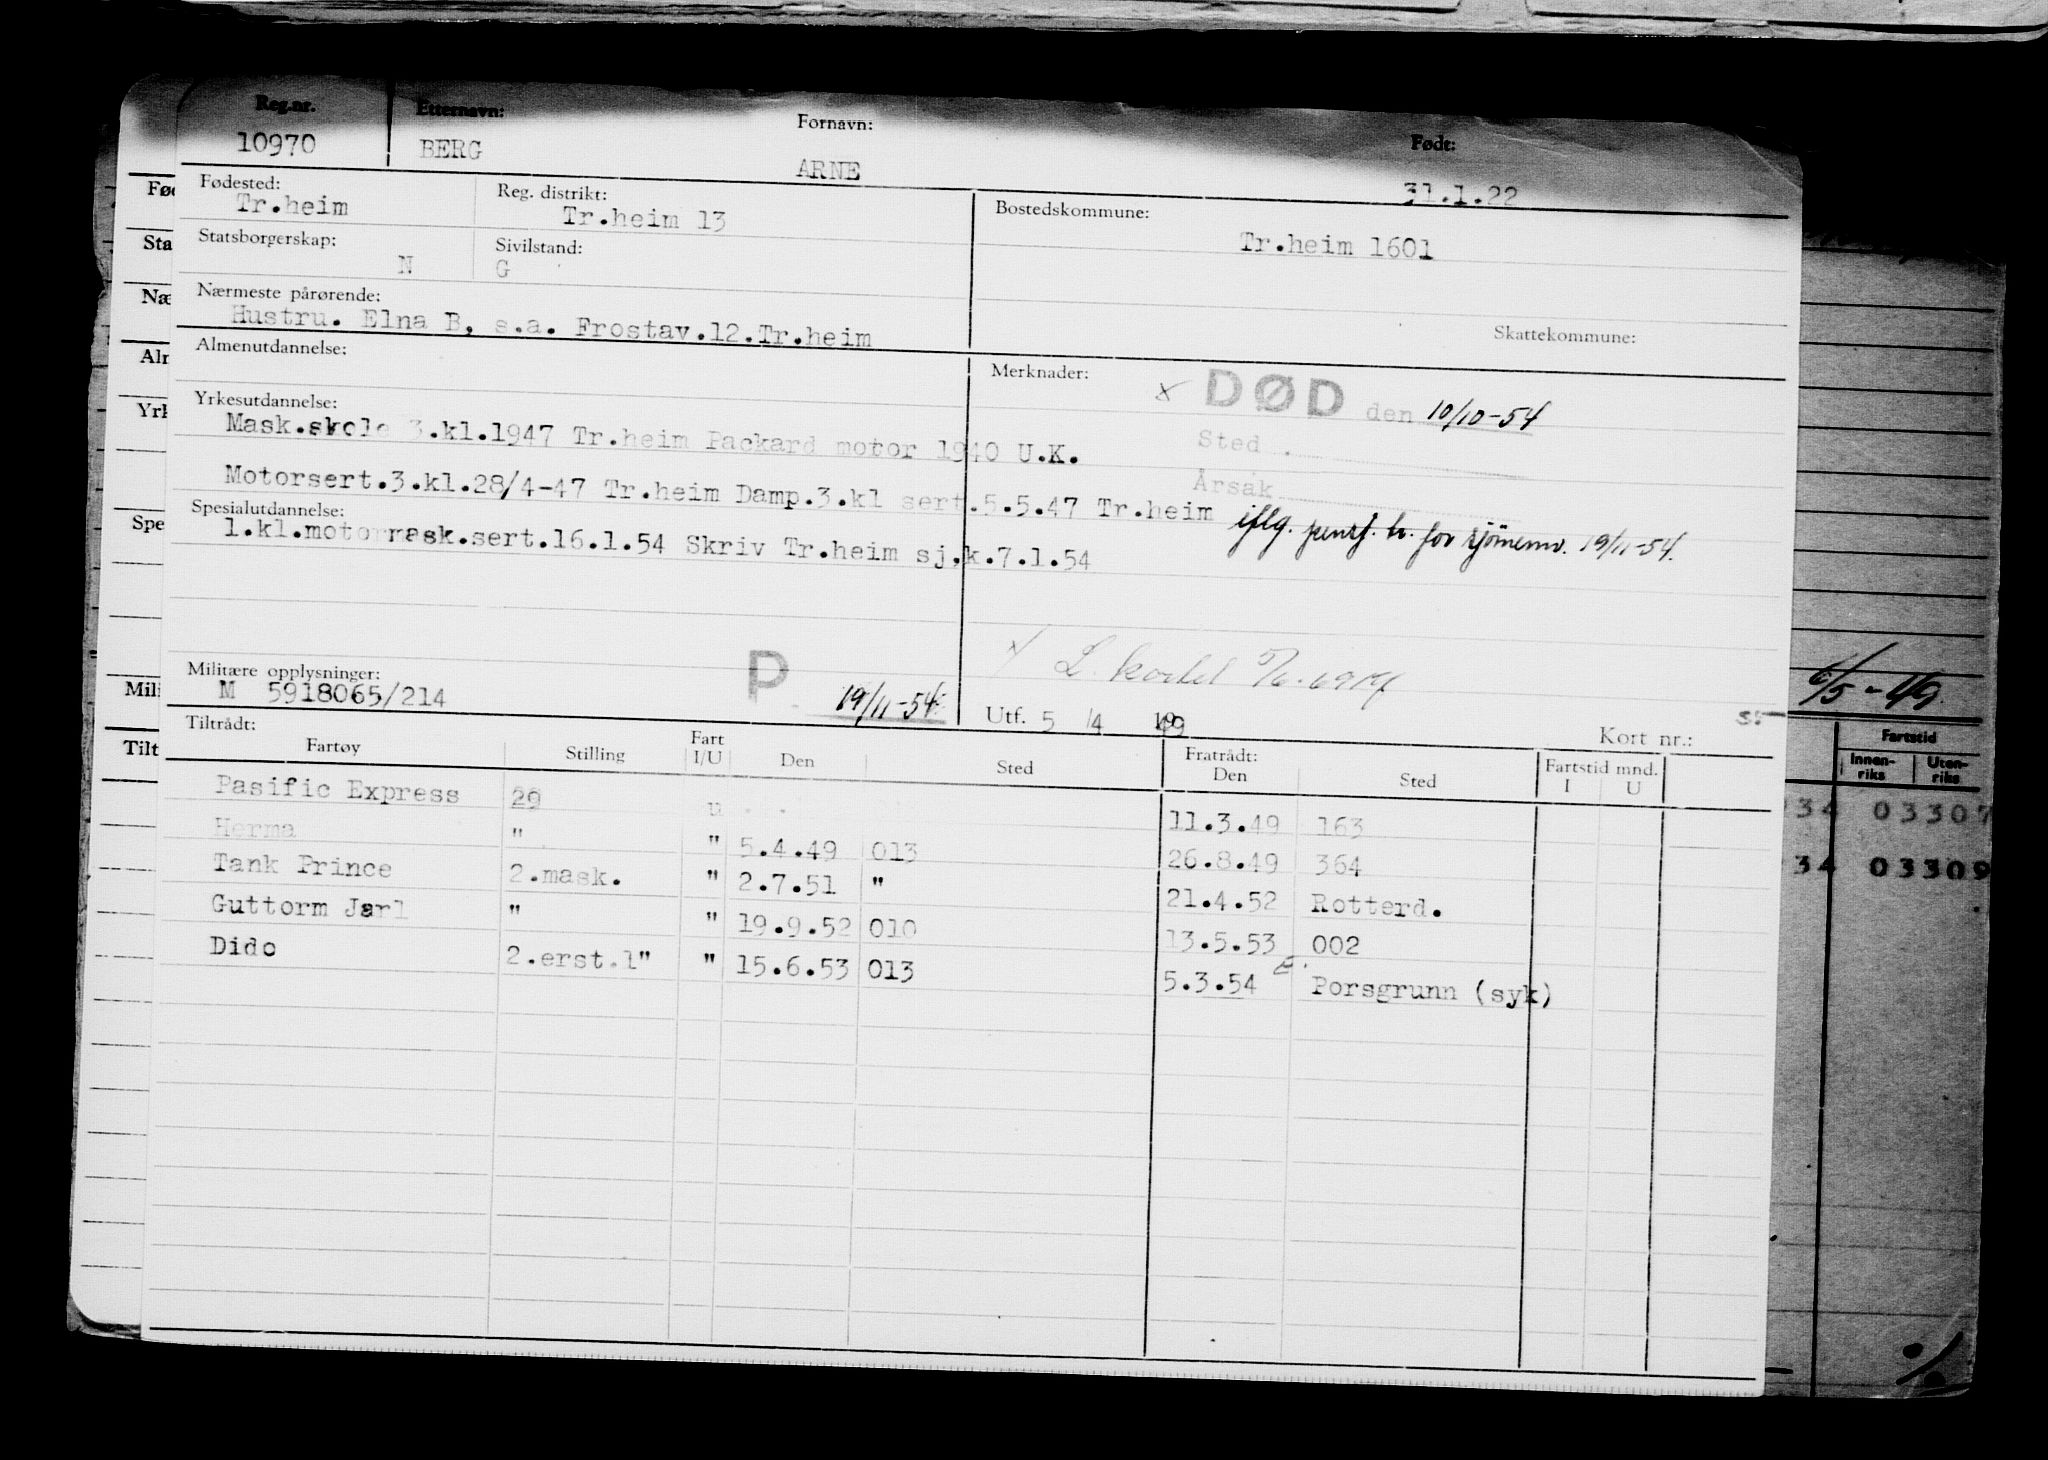 Reg.nr. Etternavn: Fornavn: Født:
10970 BERG ARNE 31.1.22
Fødested: Reg. distrikt: Bostedskommune:
Tr.heim Tr.heim 13 Tr.heim 1601
Statsborgerskap: Sivilstand:
N G
Nærmeste pårørende:
Hustru. Elna B, s.a. Frostav.12.Tr.heim
Skattekommune:
Almenutdannelse: Merknader:
x DØD den 10/10-54
Yrkesutdannelse: Sted
Mask.skole 3.kl.1947 Tr.heim Packard motor 1940 U.K.
Årsak
Motorsert.3.kl.28/4-47 Tr.heim Damp.3.kl sert.5.5.47 Tr.heim
iflg. pensj. tr. for sjömenn. 19/11-54.
Spesialutdannelse:
1.kl.motormask.sert.16.1.54 Skriv Tr.heim sj.k.7.1.54
Militære opplysninger: P 19/11-54
M 5918065/214
Utf. 5 /4 1949 Kort nr.:
Tiltrådt: Fratrådt: Fartstid mnd.
Fartøy Stilling Fart I/U Den Sted Den Sted I U
Pasific Express 29 u 11.3.49 163
Herma " " 5.4.49 013 26.8.49 364
Tank Prince 2.mask. " 2.7.51 " 21.4.52 Rotterd.
Guttorm Jarl " " 19.9.52 010 13.5.53 002
Dido 2.erst.1" " 15.6.53 013 5.3.54 Porsgrunn (syk)
Fød
Sta
Næ
Aln
Yrk
Spe
Mili
Tilt
6/5-49
Fartstid
Innen-riks Uten-riks
34 03307
34 03309